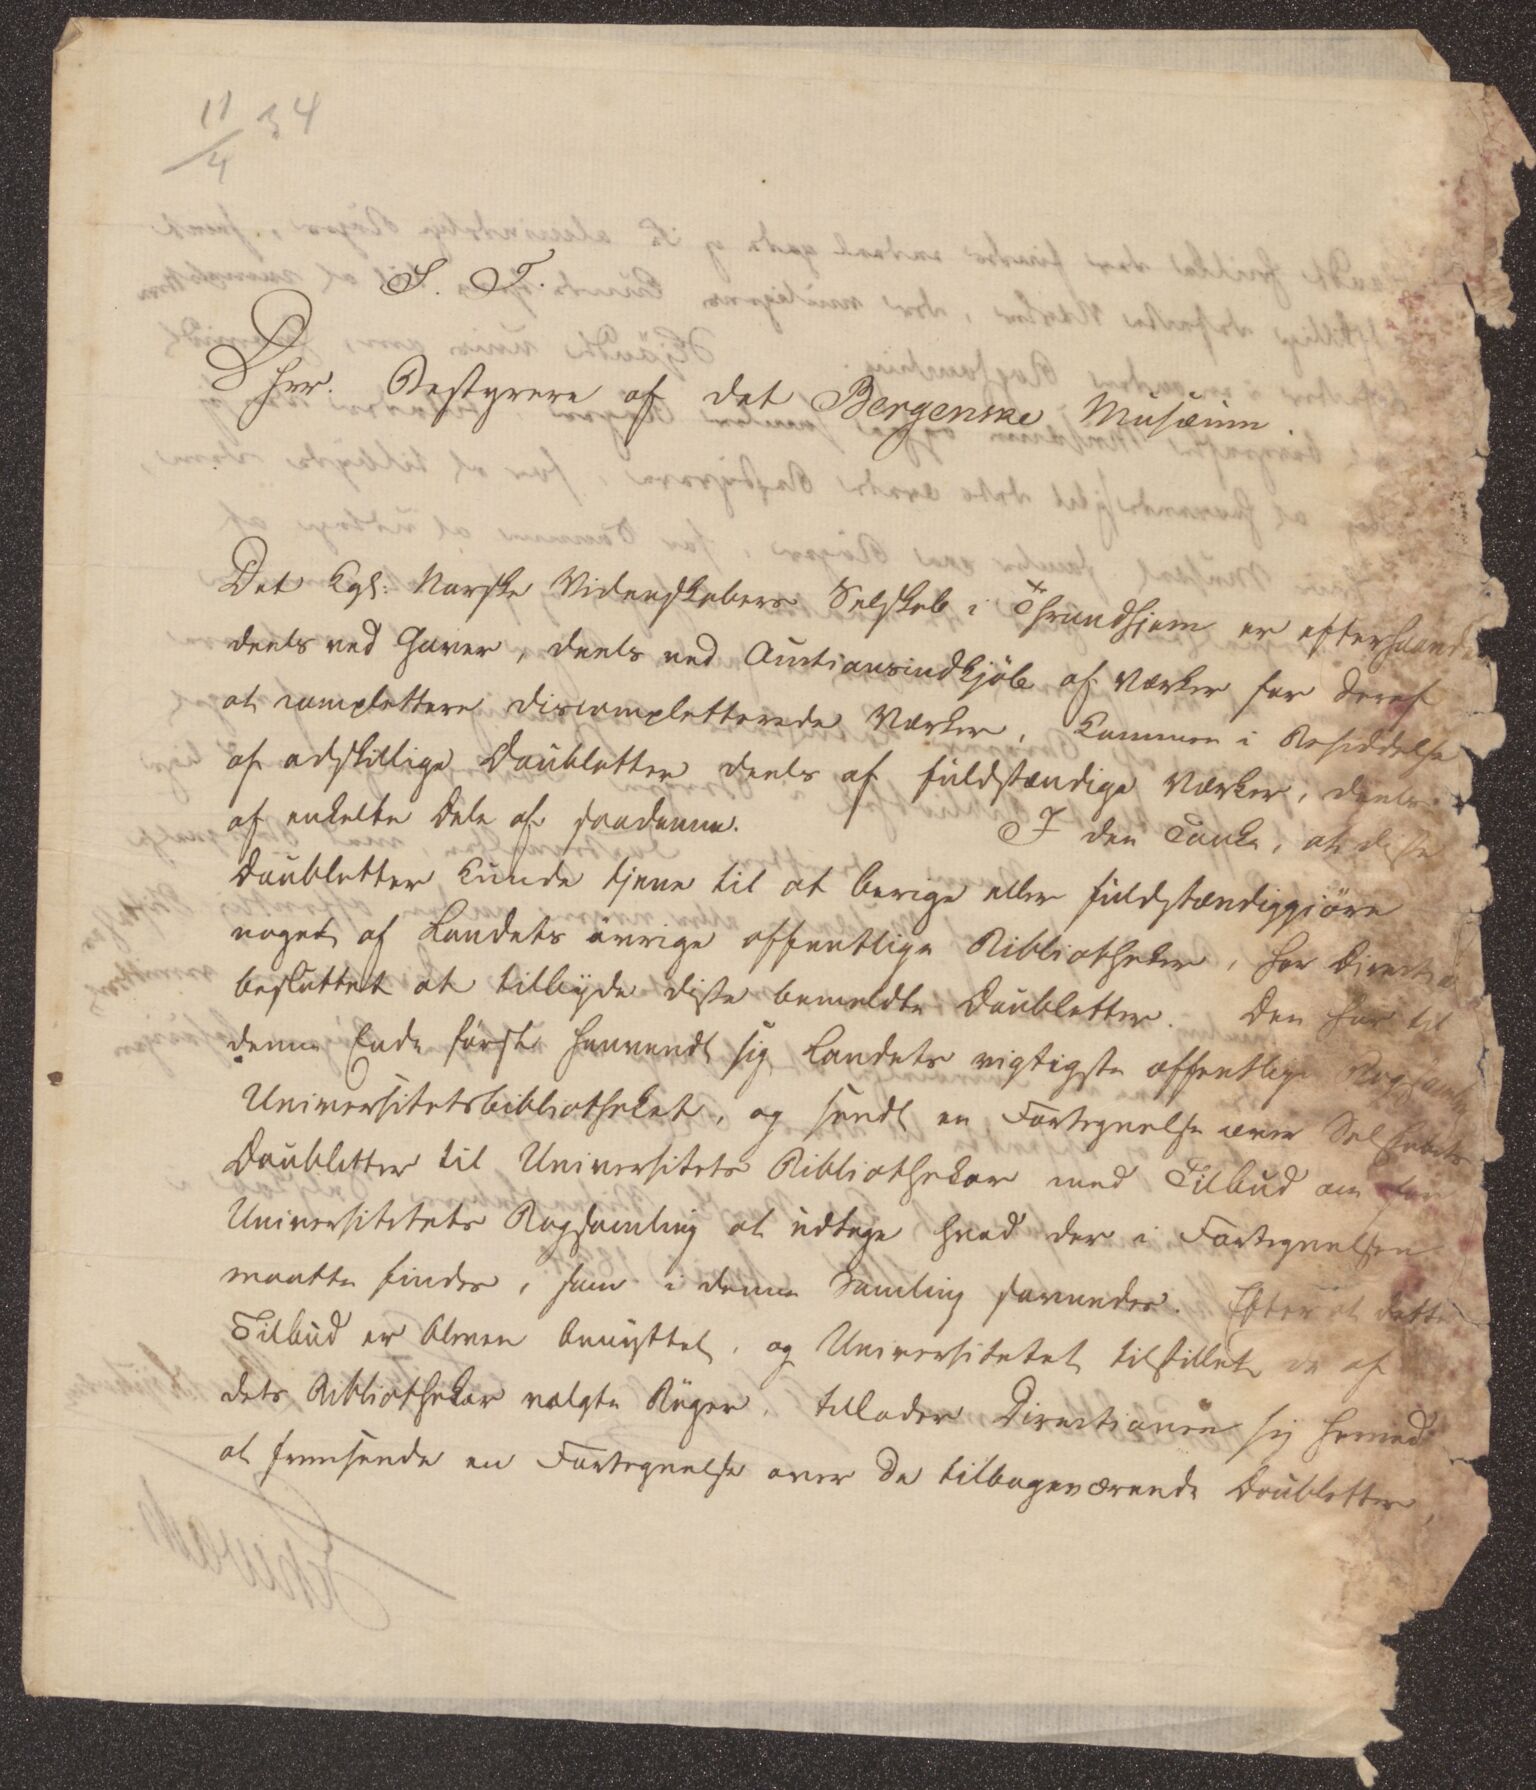 11/4 34
S. T.
DHrr. Bestyrere af det Bergenske Musæum.
Det Kgl: Norske Videnskabers Selskab i Throndhjem er efterhaanden
deels ved Gaver, deels ved Auctionsindkjöb af Værker for deraf
at complettere discompletterede Værker, kommen i Besiddelse
af adskillige Doubletter deels af fuldstændige Værker, deels
af enkelte Dele af saadanne. I den Tanke, at disse
Doubletter kunde tjene til at berige eller fuldstændiggjöre
noget af Landets övrige offentlige Bibliotheker, har Direction
besluttet at tilbyde disse bemeldte Doubletter. Den har til
denne Ende först henvendt sig Landets vigtigste offentlige Bogsamling
Universitetsbibliotheket, og sendt en Fortegnelse over Selskabets
Doubletter til Universitets Bibliothekar med Tilbud om for
Universitetets Bogsamling at udtage hvad der i Fortegnelsen
maatte findes, som i denne Samling savnedes. Efter at dette
Tilbud er bleven benyttet, og Universitetet tilstillet de af
dets Bibliothekar valgte Böger, tillader Directionen sig herved
at fremsende en Fortegnelse over de tilbageværende Doubletter,